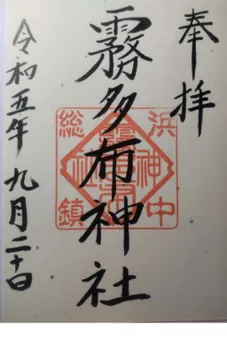 奉拝
霧多布神社
令和五年 九月二十日
浜中
総鎮